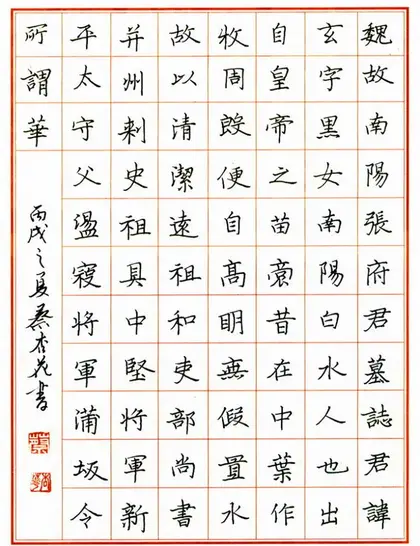 魏故南陽張府君墓誌君諱
玄字黑女南陽白水人也出
自皇帝之苗裔昔在中葉作
牧周殷便自高明無假置水
故以清潔遠祖和吏部尚書
并州刺史祖具中堅將軍新
平太守父盪寇將軍蒲坂令
所謂華
丙戌之夏蔡杏花書